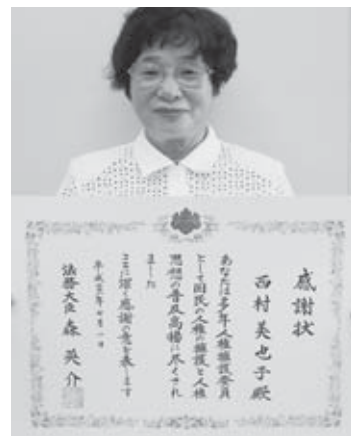 感謝状
西村美也子殿
あなたは多年人権擁護委員
として国民の人権の擁護と人権
思想の普及高揚に尽くされ
ました
ここに深く感謝の意を表します
平成
年七月一日
法務大臣 森英介